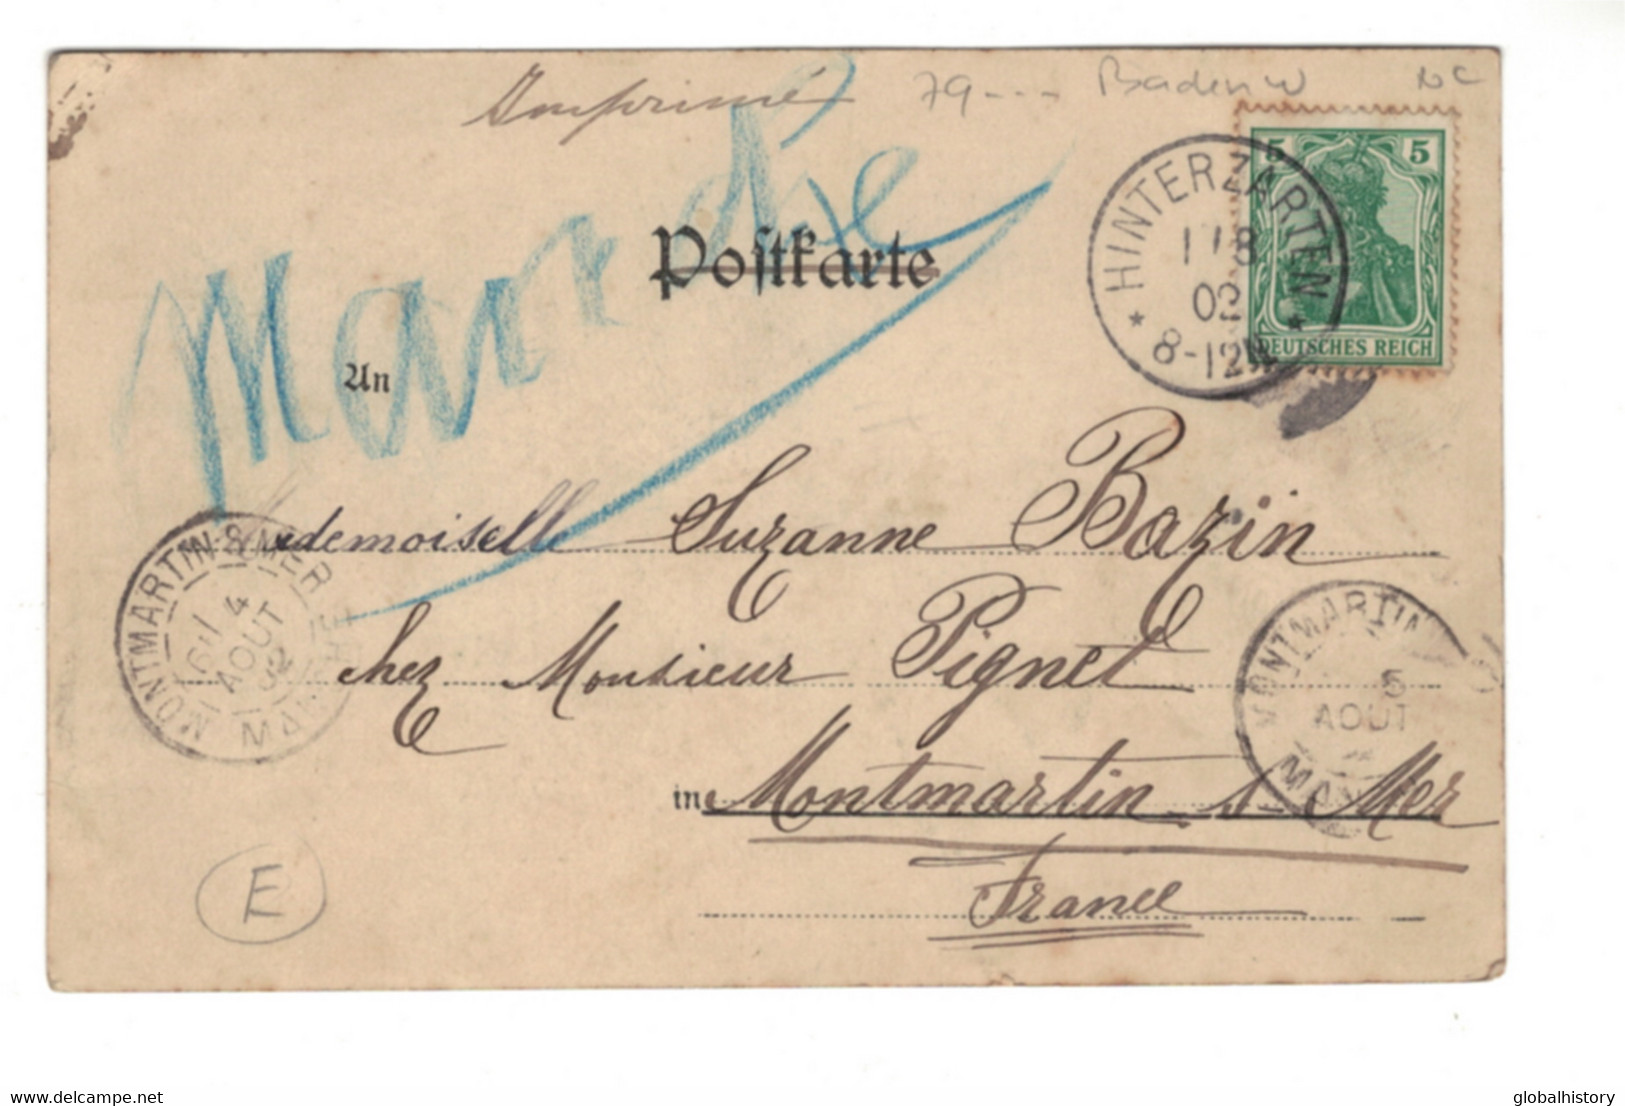 Imprimé
79---- Baden W
NC
Manche
Postkarte
5 5
DEUTSCHES REICH
* HINTERZARTEN *
1 / 8
02
8-12V
An
Mademoiselle Suzanne Bazin
chez Monsieur Pignet
in Montmartin s Mer
France
MONTMARTIN-S-MER
4
AOUT
02
MANCHE
MONTMARTIN
5
AOUT
E
www.delcampe.net
globalhistory